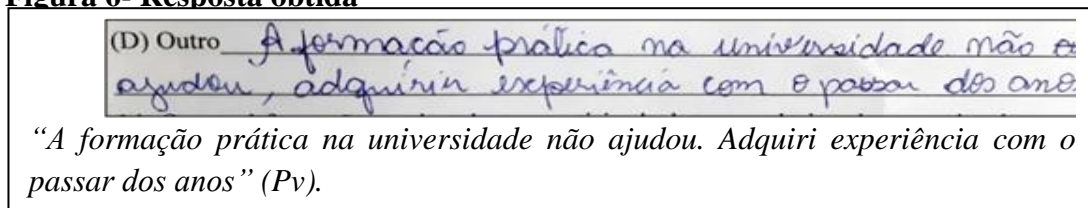 Figura 6- Resposta obtida
(D) Outro A formação prática na universidade não
ajudou, adquirir experiência com o passar dos anos
"A formação prática na universidade não ajudou. Adquiri experiência com o
passar dos anos" (Pv).